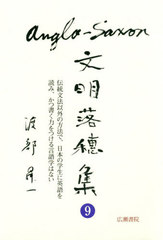 Anglo-Saxon
文明落穂集
伝統文法以外の方法で、日本の学生に英語を
読み、かつ書く力をつける言語学はない
渡部昇一
9
広瀬書院